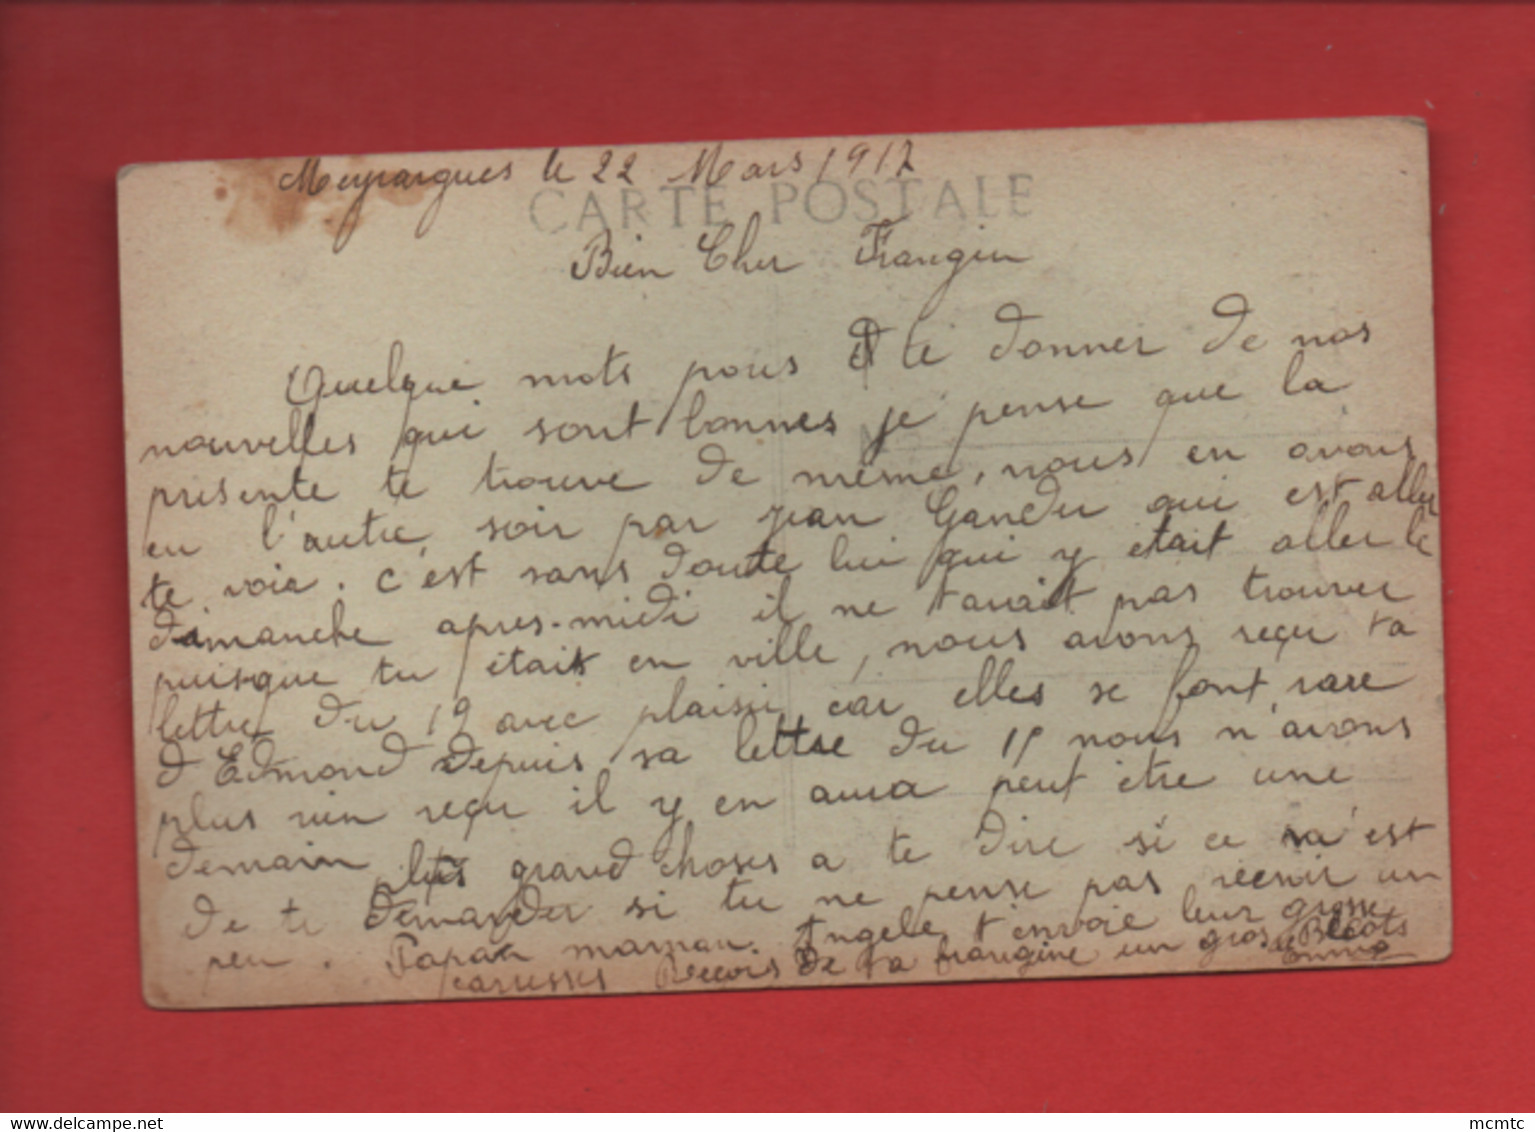 Meyrargues le 22 Mars 1917
CARTE POSTALE
Bien Cher Frangin
Quelque mots pour te donner de nos
nouvelles qui sont bonnes je pense que la
présente te trouve de même, nous en avons
eu l'autre soir par jean Gander qui est aller
te voir. c'est sans doute lui qui y était aller le
dimanche apres-midi il ne t'avait pas trouver
puisque tu était en ville, nous avons reçu ta
lettre du 19 avec plaisir car elles se font rare
d'Edmond depuis sa lettre du 15 nous n'avons
plus rien reçu il y en aura peut être une
demain plus grand choses a te dire si ce n'est
de te demander si tu ne pense pas venir un
peu. Papa maman. Angele t'envoie leur grosse
caresses Reçois de ta frangine un gros Bécots
Emma
delcampe.net
mcmtc